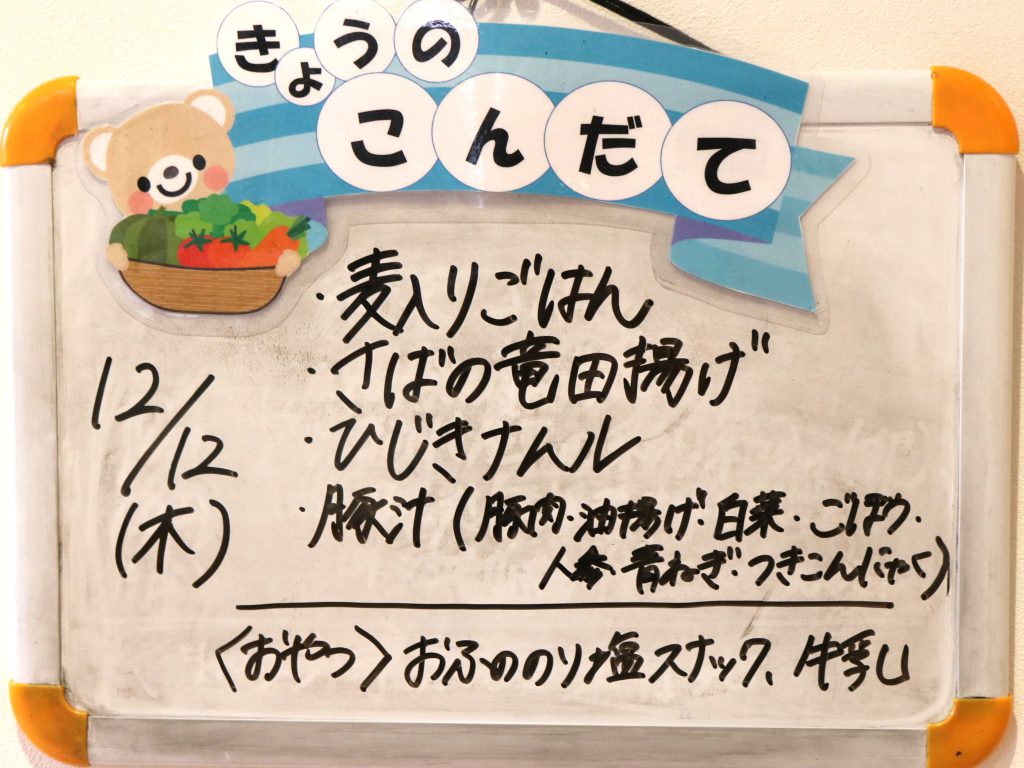 きょうの
こんだて
12/12
(木)
・麦入りごはん
・さばの竜田揚げ
・ひじきナムル
・豚汁(豚肉・油揚げ・白菜・ごぼう・
人参・青ねぎ・つきこんにゃく)
〈おやつ〉おふののり塩スナック、牛乳